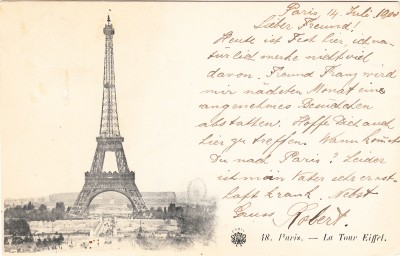 Paris, 14. Juli. 1900
Lieber Freund!
Heute ist Fest hier, ich na-
türlich merke nicht viel
davon. Freund Franz wird
mir nächsten Monat ein
angenehmes
abstatten. Hoffe Dich auch
hier zu treffen. Wann kommst
Du nach Paris? Leider
ist mein Vater sehr ernst-
haft krank. Nebst
Gruss Robert.
48. Paris. — La Tour Eiffel.